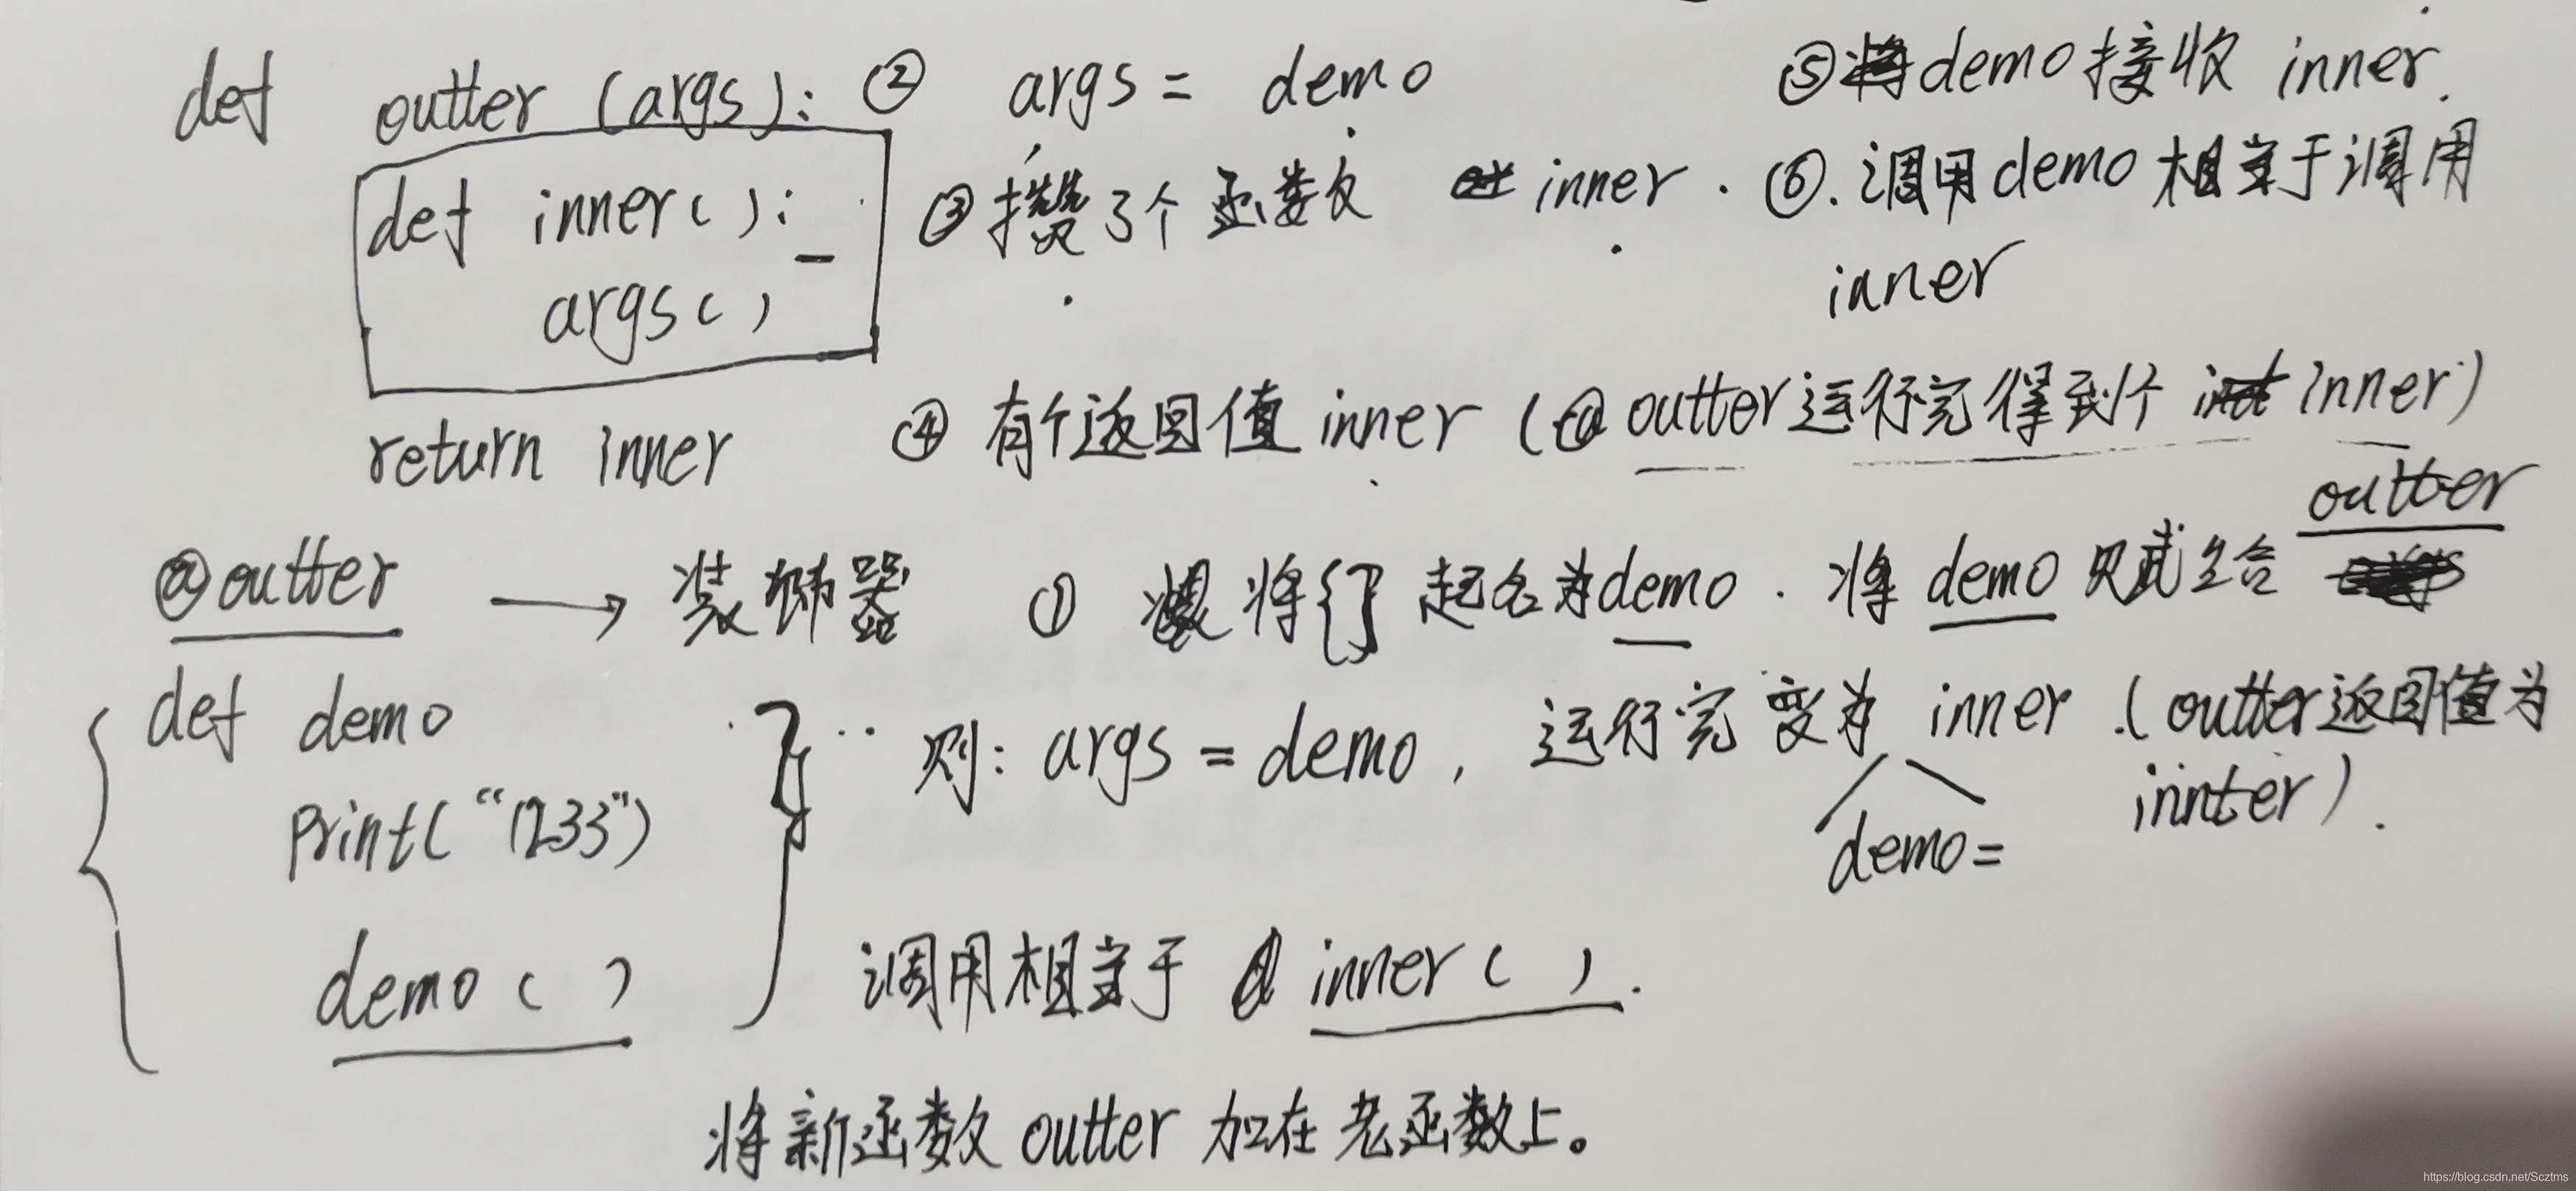 def outter (args): ② args = demo ⑤ demo接收 inner.
def inner(): ③ 攒了个函数 inner . ⑥. 调用demo相当于调用
inner
args()
return inner ④ 有个返回值 inner (outter运行完得到个 inner)
outter
@outter → 装饰器 ① 将{} 起名为demo . 将 demo 赋给
def demo 则: args = demo, 运行完变为 inner. (outter返回值为
innter).
demo=
print("1233")
demo ( ) 调用相当于 inner ( ).
将新函数 outter 加在老函数上。
https://blog.csdn.net/Scztms